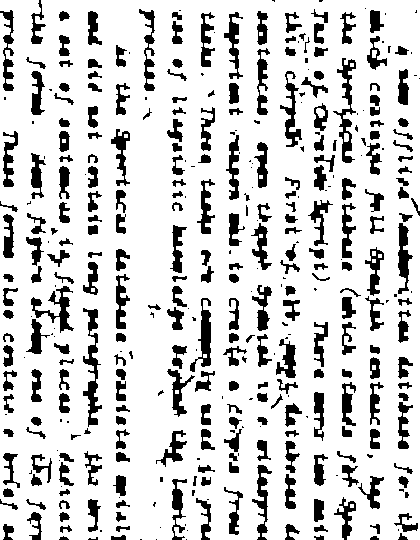 A new offline handwritten database for the
which contains full Spanish sentences, has re
the Spartacus database (which stands for Spa
Task of Cursive Script). There were two mai
this corpus. First of all, most databases do
sentences, even though Spanish is a widespre
important reason was to create a corpus from
tasks. These tasks are commonly used in prac
use of linguistic knowledge beyond the lexic
process.
As the Spartacus database consisted mainly
and did not contain long paragraphs, the wri
a set of sentences in fixed places: dedicate
the forms. Next figure shows one of the form
process. These forms also contain a brief se